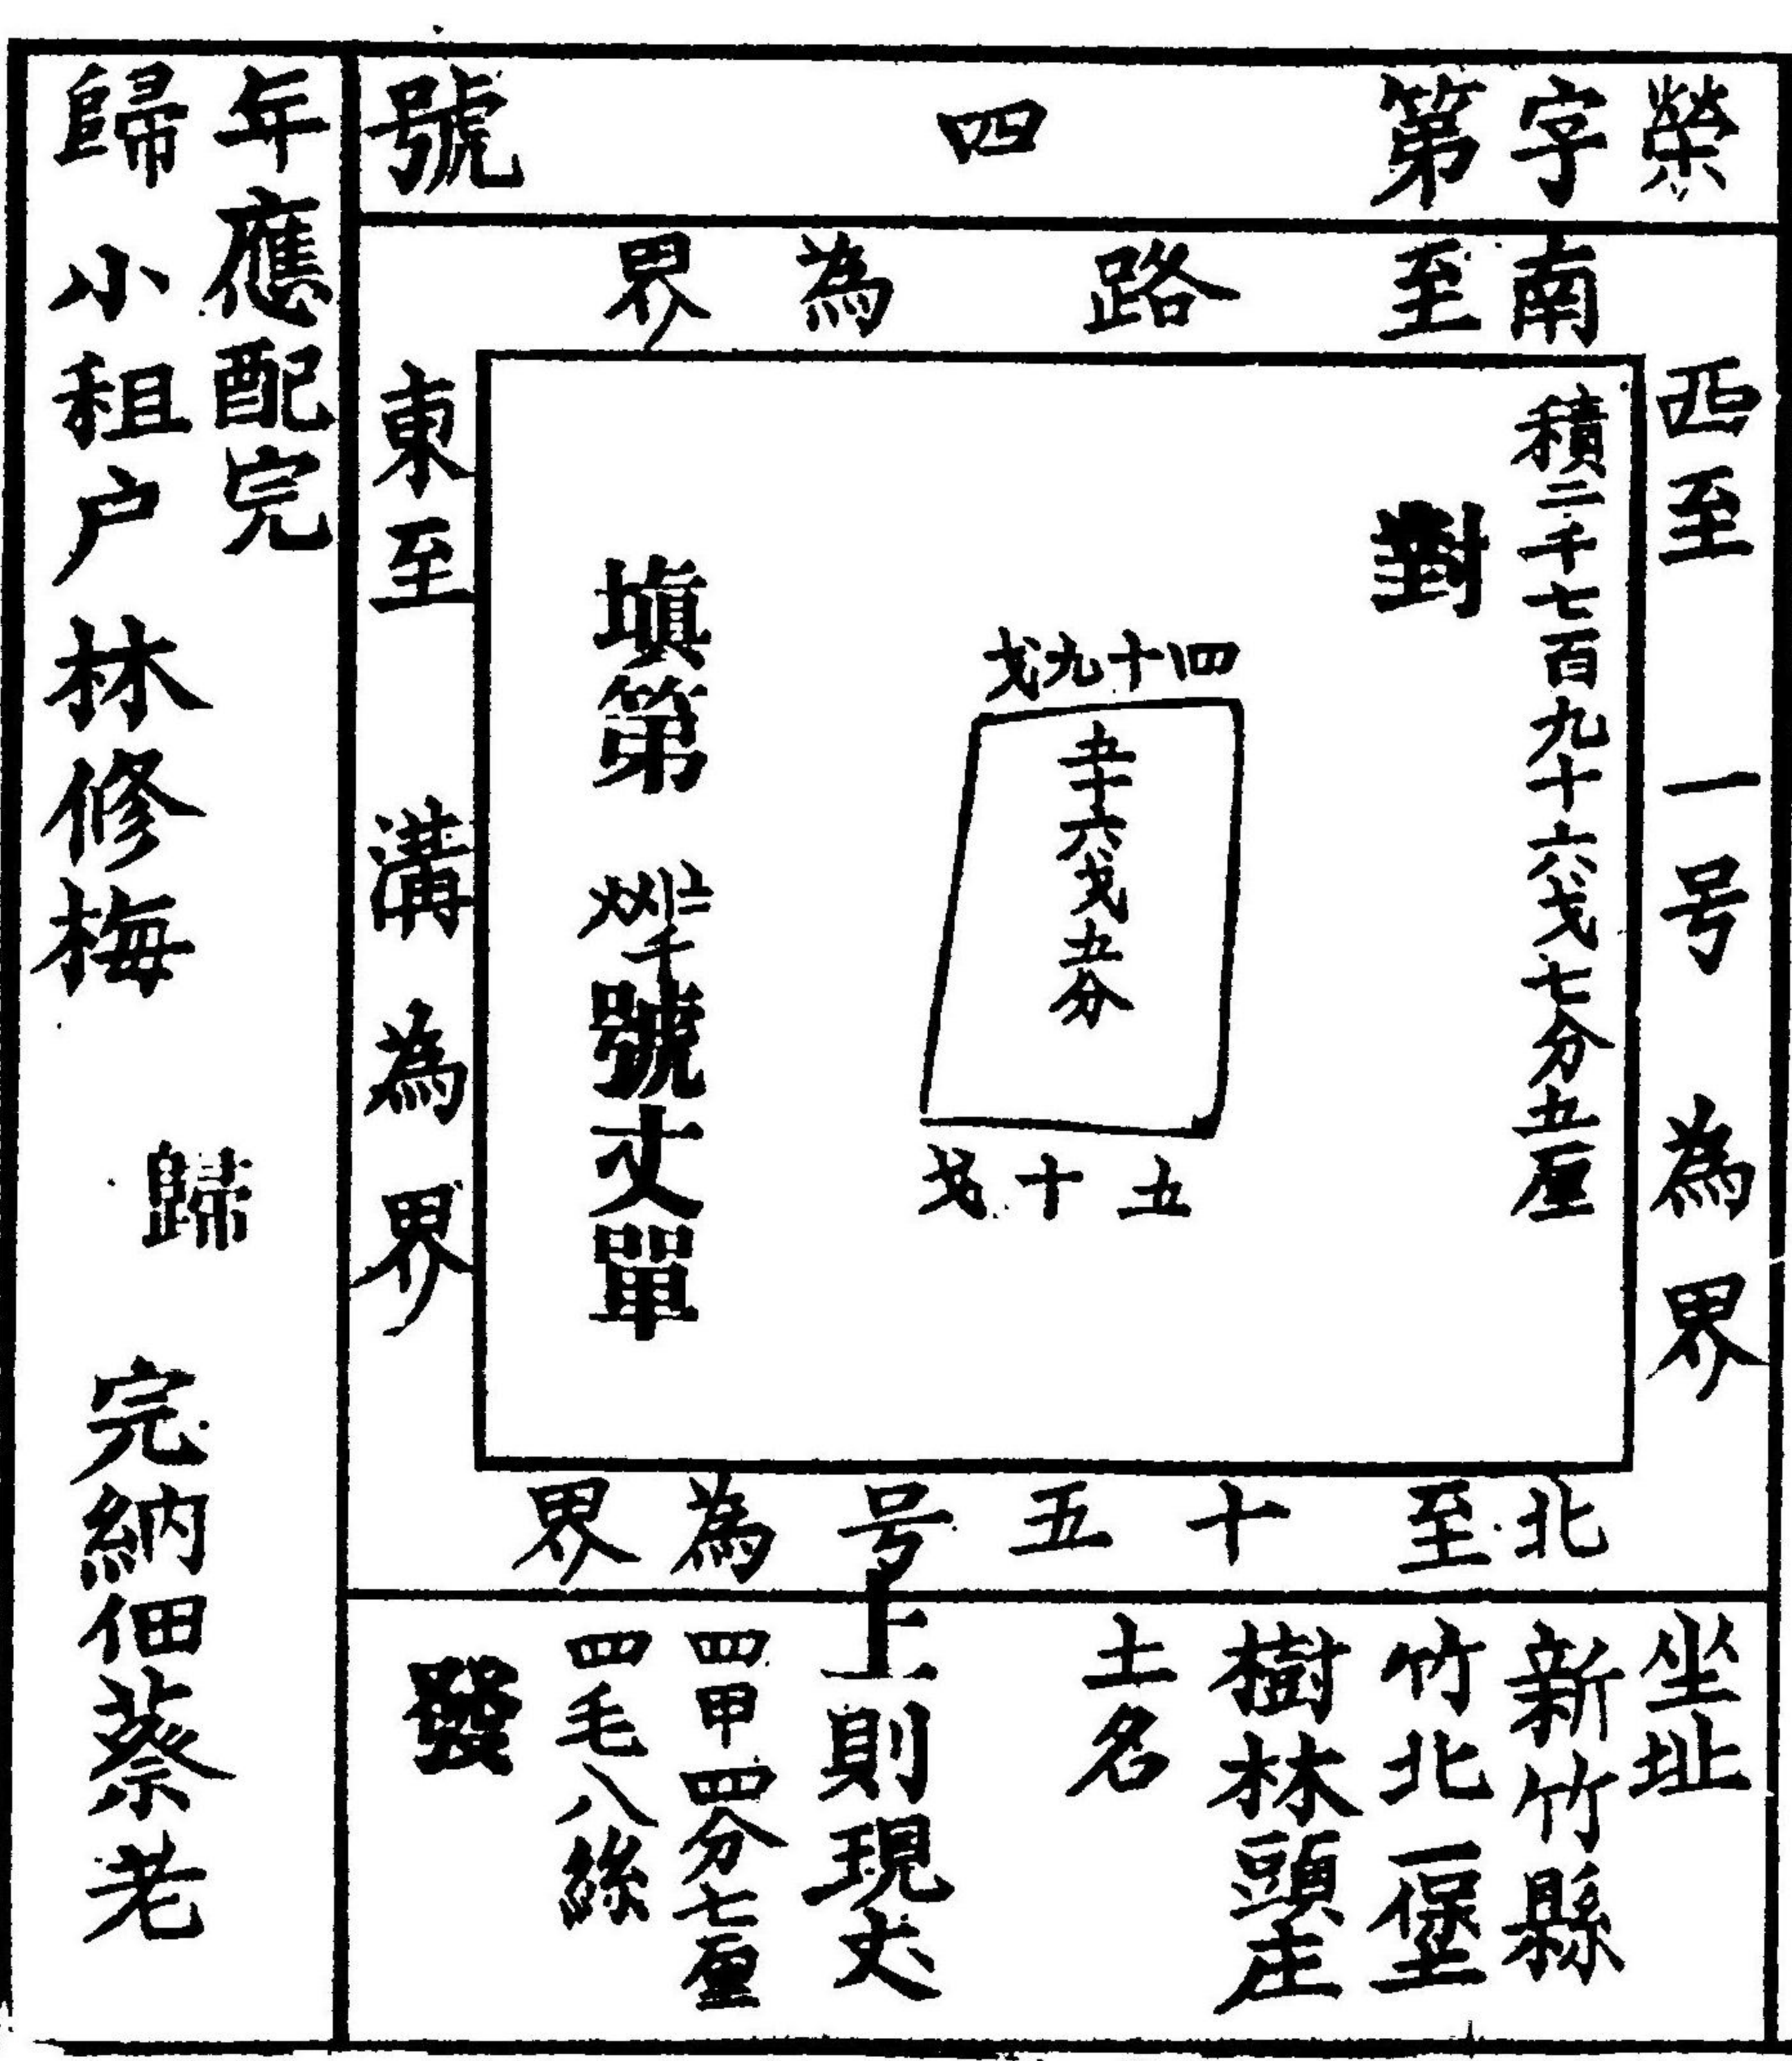 榮字第四號
南至路為界
西至一号為界
積二千七百九十六戈七分五厘
對
四十九戈
五十六戈五分
五十戈
填第
號丈單
東至溝為界
北至十五号為界
坐址
新竹縣
竹北一堡
樹林頭庄
土名
上則現丈
四甲四分七厘
四毛八絲
發
年應配完
歸小租户林修梅
歸
完納佃蔡老